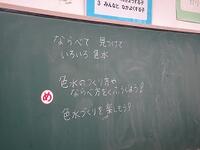 3 みんなと なかよくする子
ならべて 見つけて
いろいろ 色水
色水のつくり方や
ならべ方をくふうしよう!
め
色水づくりを楽しもう!